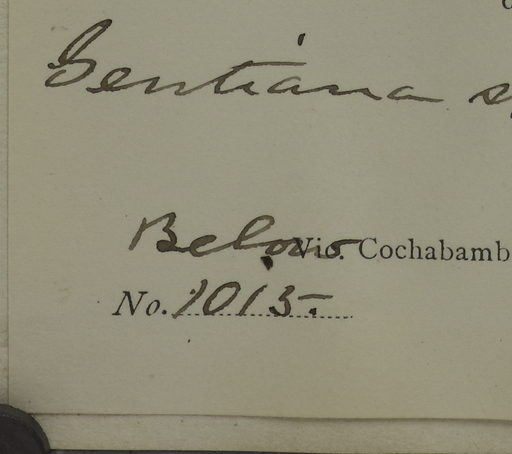 Gentiana s
Below Vic. Cochabamb
No. 1015.